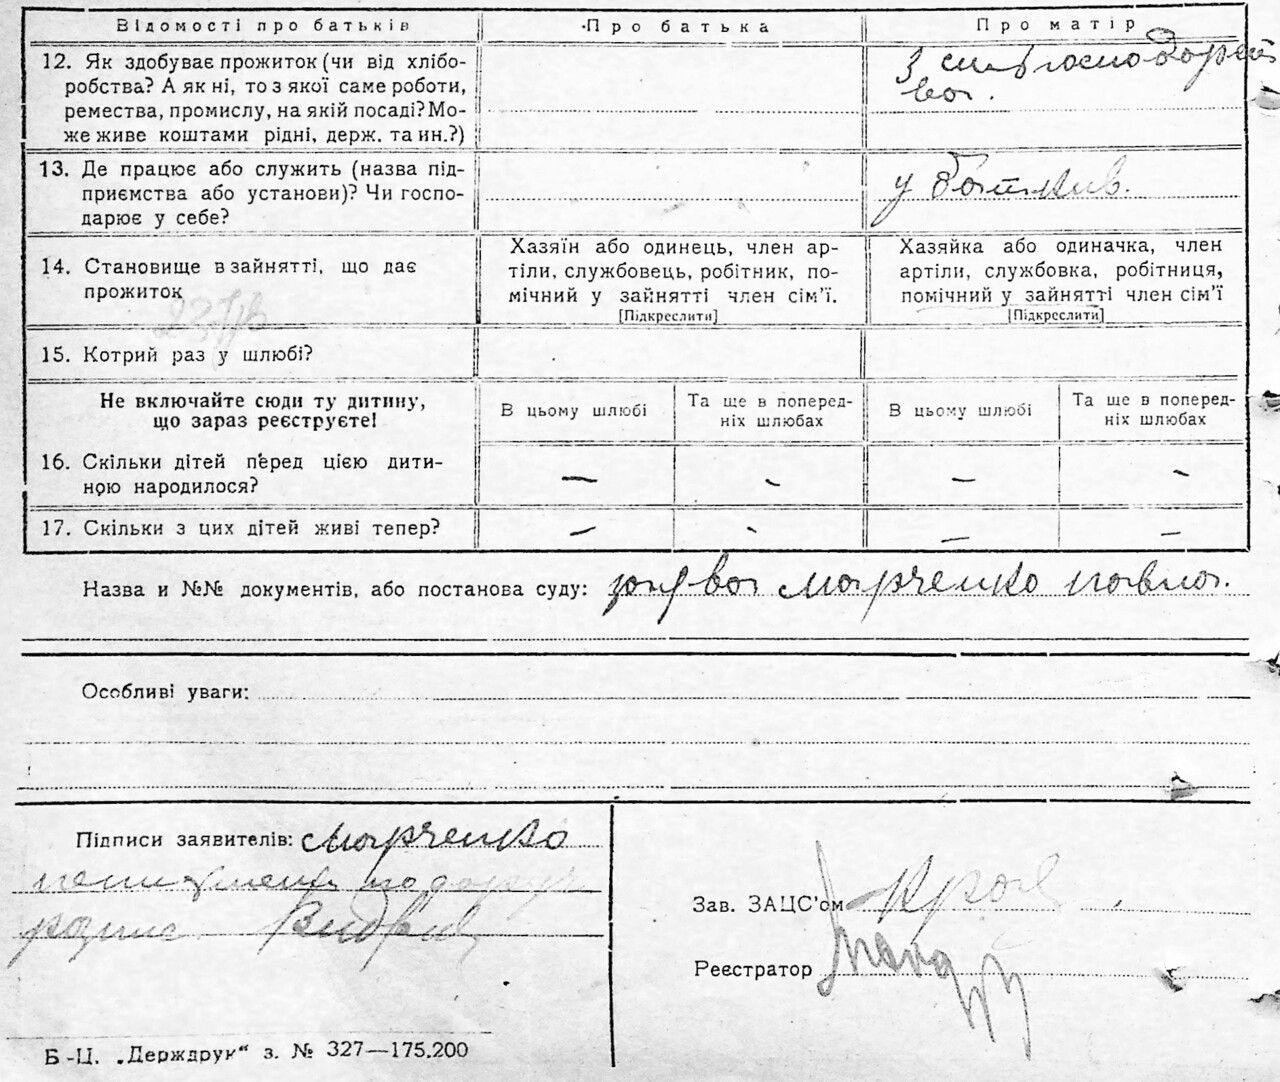 Відомості про батьків
Про батька
Про матір
12. Як здобуває прожиток (чи від хлібо-
робства? А як ні, то з якої саме роботи,
ремества, промислу, на якій посаді? Мо-
же живе коштами рідні, держ. та ин.?)
З
ва.
13. Де працює або служить (назва під-
приємства або установи)? Чи госпо-
дарює у себе?
у батьків.
14. Становище в зайнятті, що дає
прожиток
Хазяїн або одинець, член ар-
тіли, службовець, робітник, по-
мічний у зайнятті член сім'ї.
[Підкреслити]
Хазяйка або одиначка, член
артіли, службовка, робітниця,
помічний у зайнятті член сім'ї
[Підкреслити]
15. Котрий раз у шлюбі?
Не включайте сюди ту дитину,
що зараз реєструєте!
В цьому шлюбі
Та ще в поперед-
ніх шлюбах
В цьому шлюбі
Та ще в поперед-
ніх шлюбах
16. Скільки дітей перед цією дити-
ною народилося?
— - — -
17. Скільки з цих дітей живі тепер?
— - — —
Назва и №№ документів, або постанова суду: заява Марченко Павла.
Особливі уваги:
Підписи заявителів: Марченко
Зав. ЗАЦС'ом
Реєстратор
Б-Ц. „Держдрук“ з. № 327—175.200